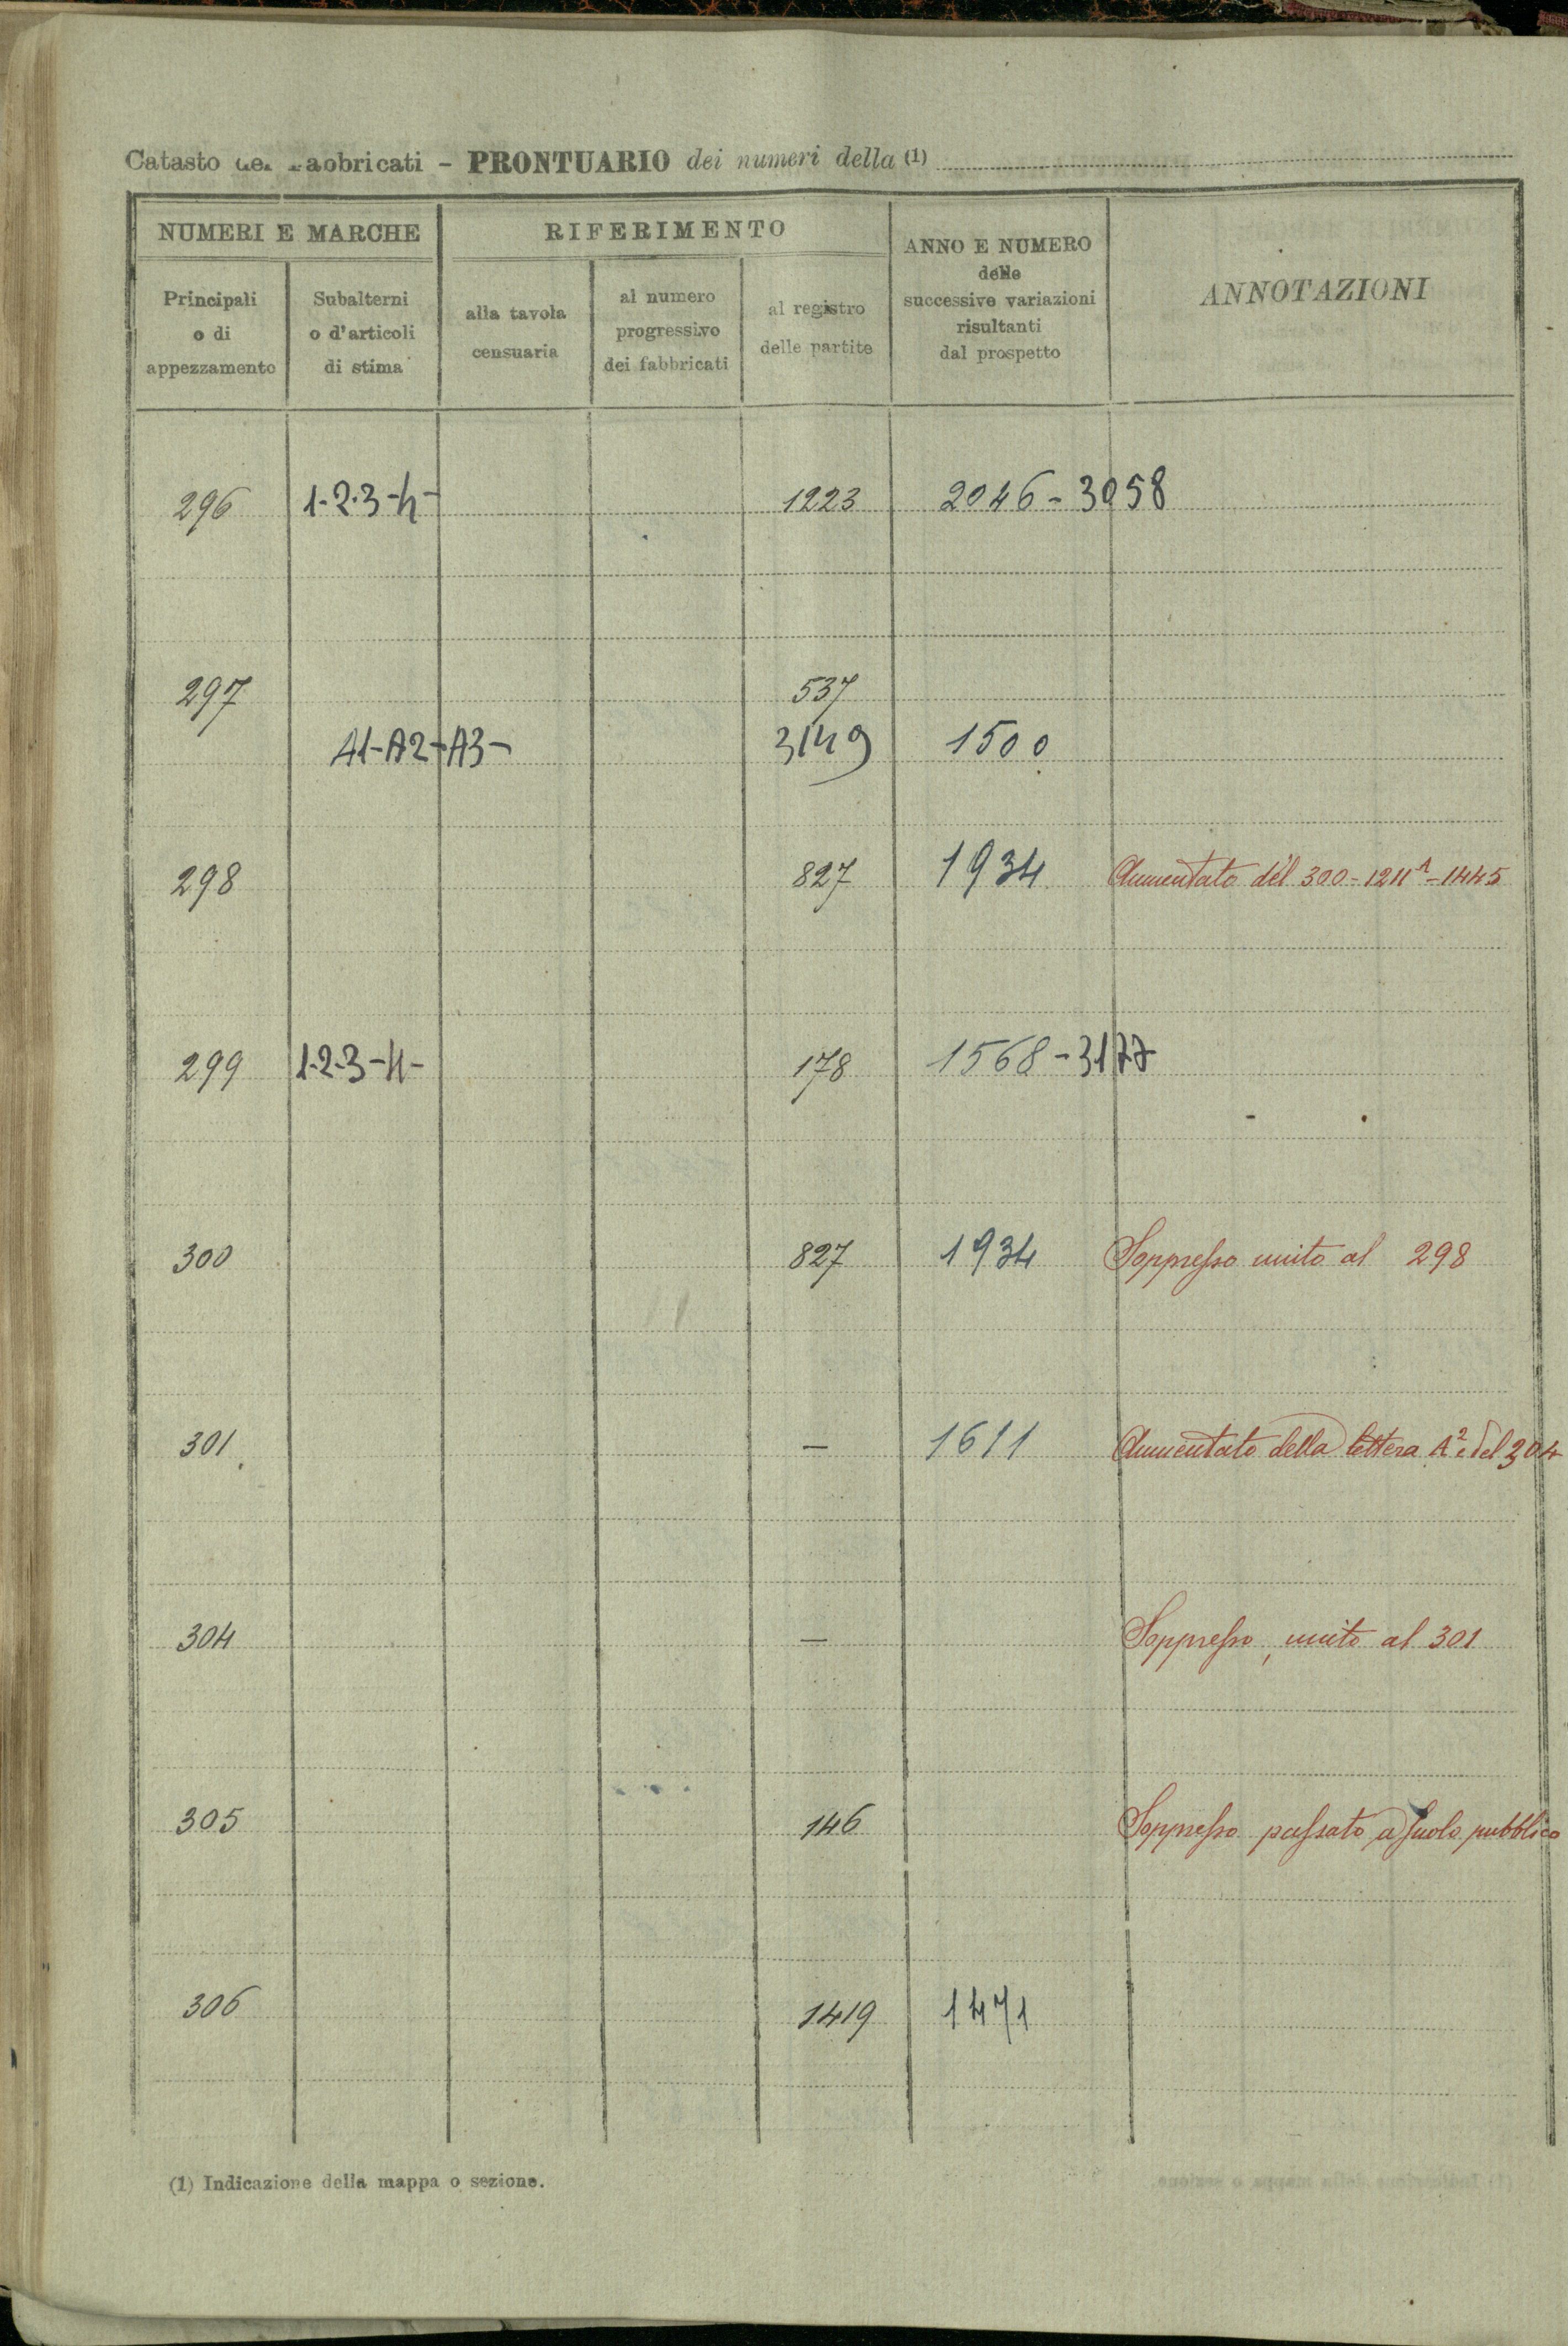 Catasto dei Fabbricati - PRONTUARIO dei numeri della (1)
NUMERI E MARCHE
RIFERIMENTO
ANNO E NUMERO
delle
successive variazioni
risultanti
dal prospetto
ANNOTAZIONI
Principali
o di
appezzamento
Subalterni
o d'articoli
di stima
alla tavola
censuaria
al numero
progressivo
dei fabbricati
al registro
delle partite
296 1-2-3-4- 1223 2046-3058
297 537
A1-A2-A3- 3149 1500
298 827 1934 Aumentato del 300-1211A-1445
299 1-2-3-4- 178 1568-3177
300 827 1934 Soppresso unito al 298
301 — 1611 Aumentato della lettera A2 e del 304
304 — Soppresso, unito al 301
305 146 Soppresso passato a suolo pubblico
306 1419 1471
(1) Indicazione della mappa o sezione.